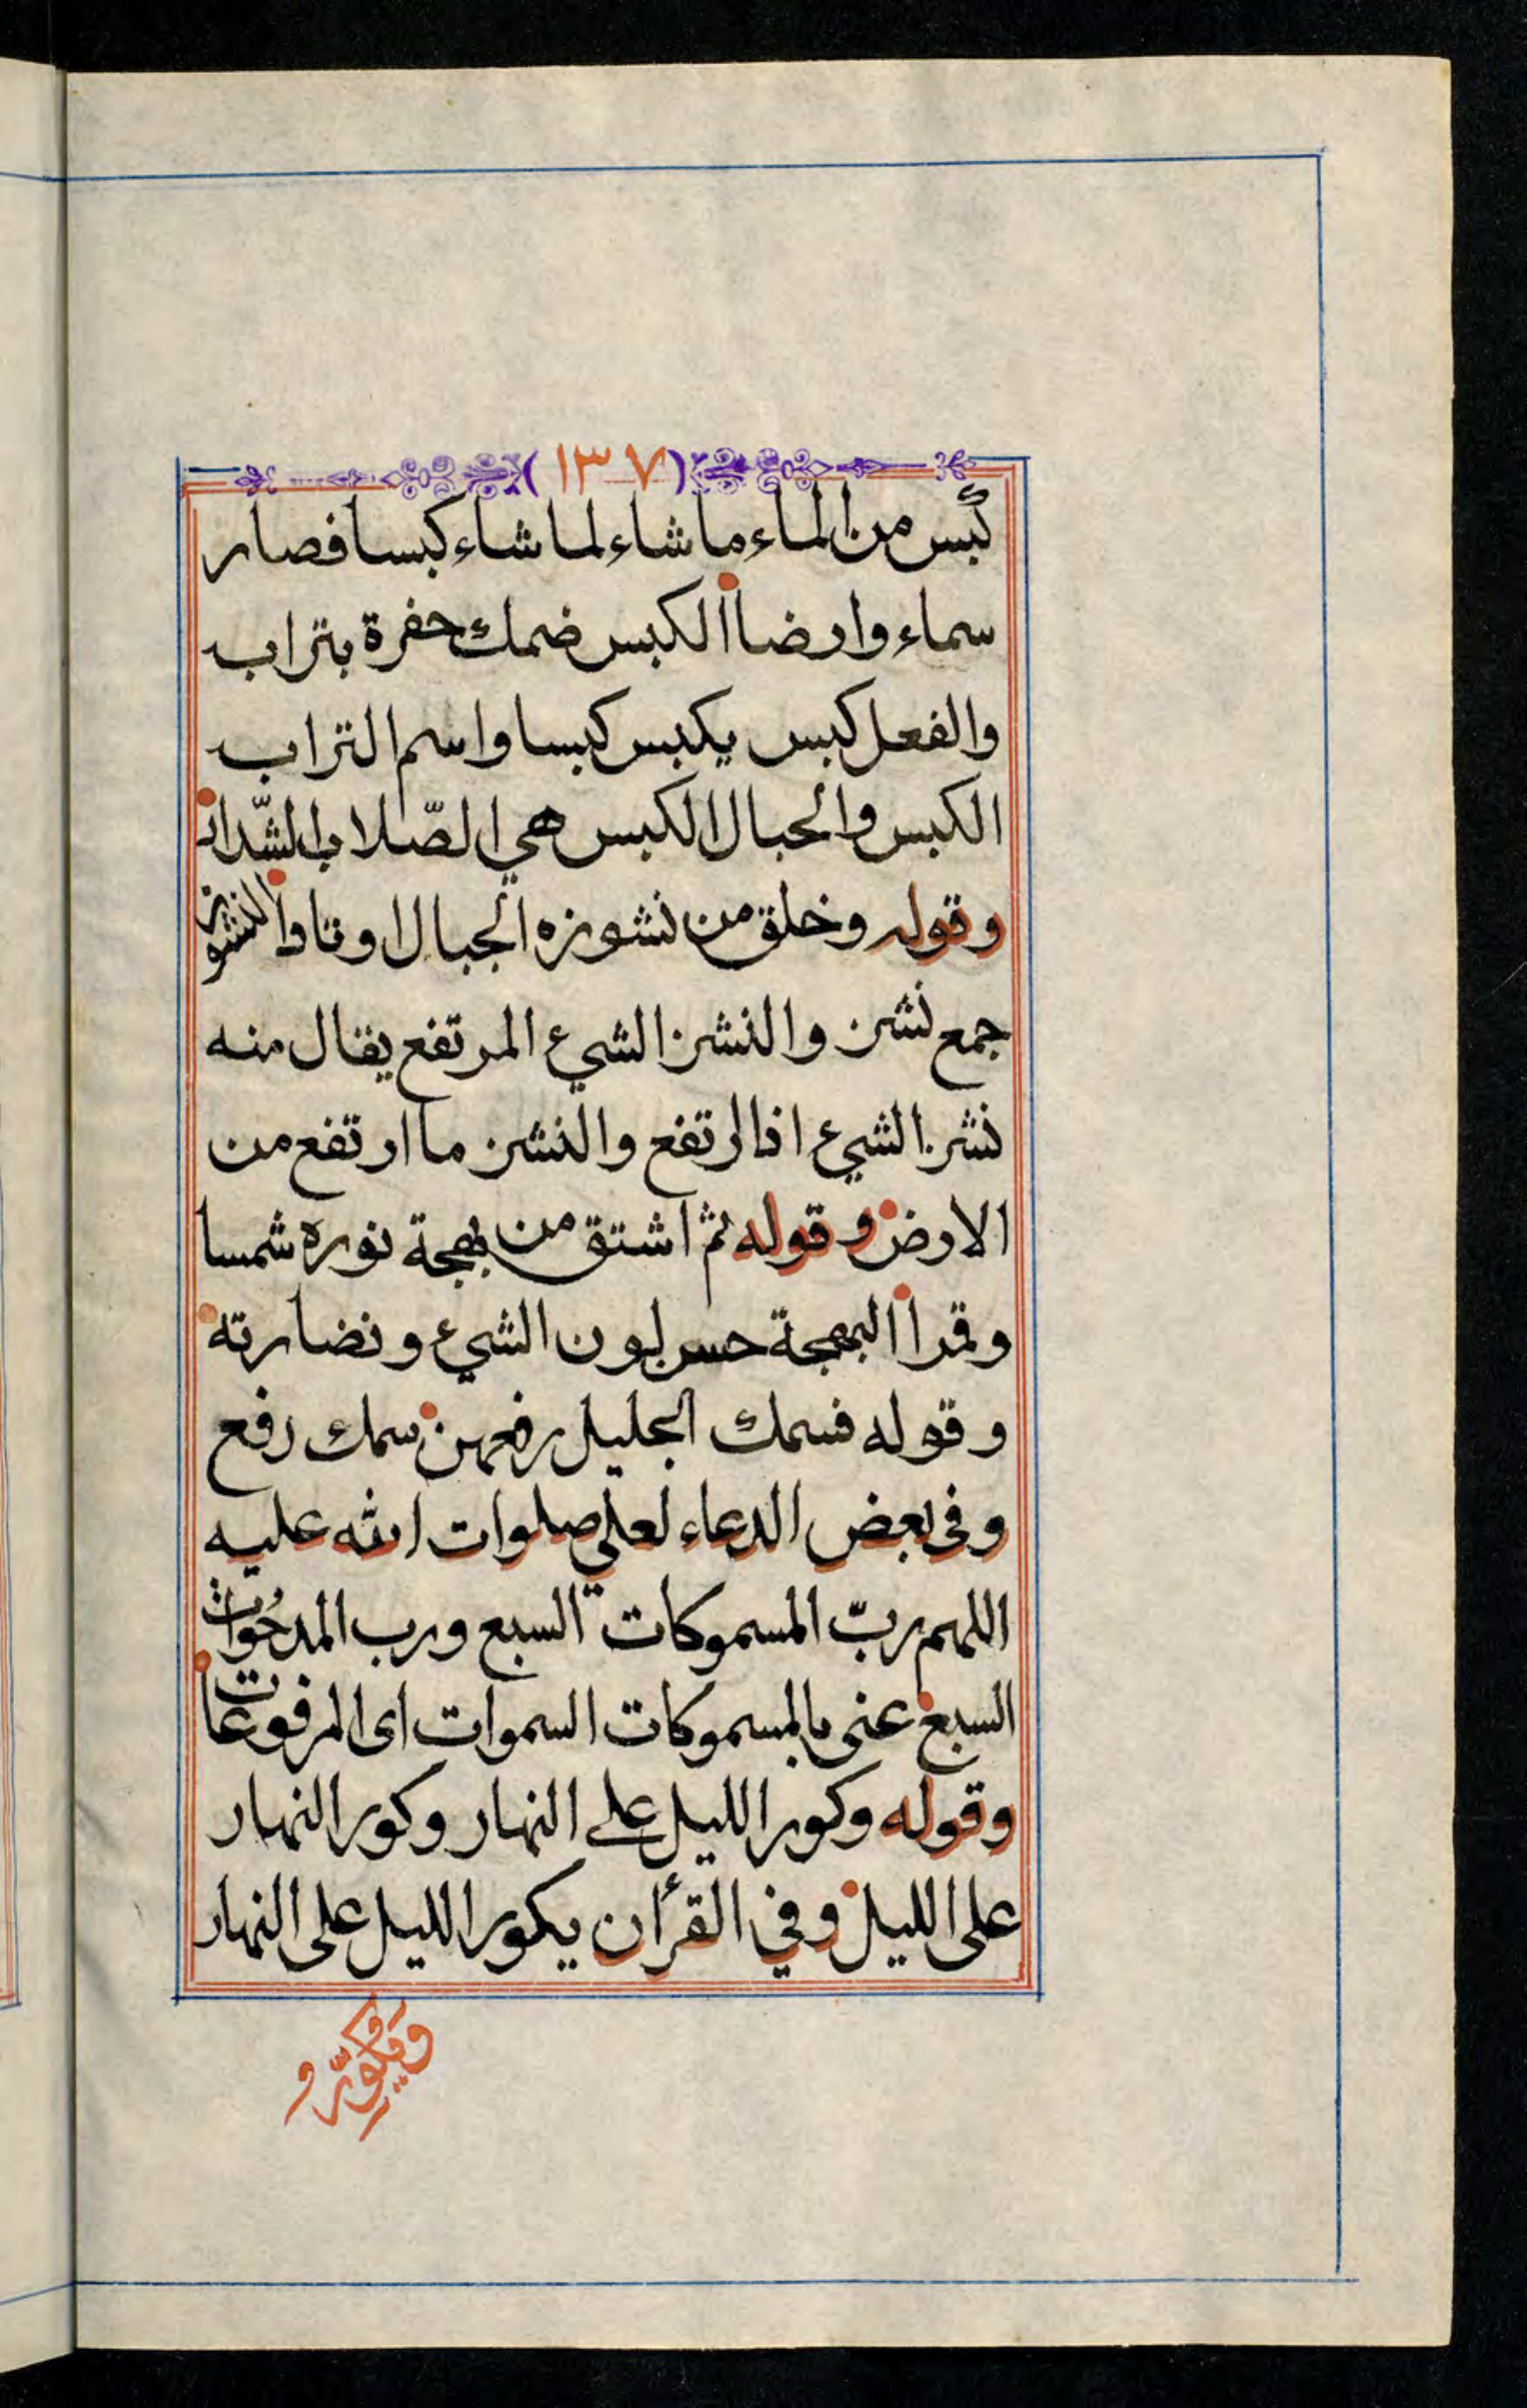 (١٣٧)
كبس من الماء ما شاء لما شاء كبسا فصار
سماء وارضا الكبس ضمك حفرة بتراب
والفعل كبس يكبس كبسا واسم التراب
الكبس والجبال الكبس هي الصّلاب الشّداد
وقوله وخلق من نشوزه الجبال اوتادا النشوز
جمع نشز والنشز الشيء المرتفع يقال منه
نشز الشيء اذا ارتفع والنشز ما ارتفع من
الارض وقوله ثم اشتق من بهجة نوره شمسا
وقمرا البهجة حسن لون الشيء ونضارته
وقوله فسمك الجليل رفعهن سمك رفع
وفي بعض الدعاء لعلي صلوات الله عليه
اللهم ربّ المسموكات السبع ورب المدحُوات
السبع عنى بالمسموكات السموات اى المرفوعات
وقوله وكور الليل على النهار وكور النهار
على الليل وفي القرأن يكور الليل على النهار
ويكوّر و